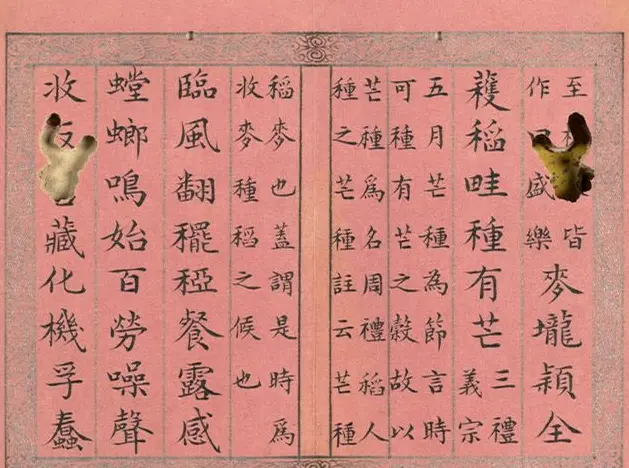 至皆
作盛樂
麥壠穎全
穫稻畦種有芒
三禮
義宗
五月芒種為節言時
可種有芒之穀故以
芒種爲名周禮稻人
種之芒種註云芒種
稻麥也蓋謂是時爲
收麥種稻之候也
臨風翻䆉稏餐露感
螳螂鳴始百勞噪聲
收藏化機孚蠢